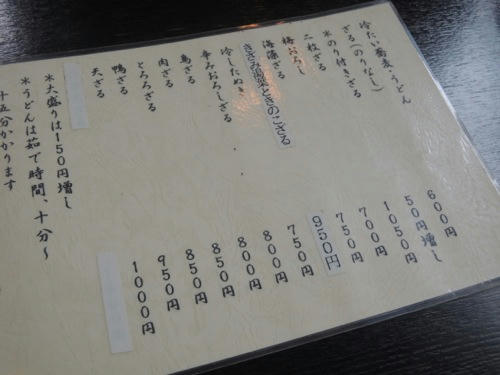 冷たい蕎麦・うどん
ざる(のりなし) 600円
※のり付きざる 50円増し
二枚ざる 1050円
梅おろし 700円
海藻ざる 750円
きざみ湯葉ときのこざる 950円
冷したぬき 750円
辛みおろしざる 800円
鳥ざる 800円
肉ざる 850円
とろろざる 850円
鴨ざる 950円
天ざる 1000円
※大盛りは150円増し
※うどんは茹で時間、十分~
十五分かかります